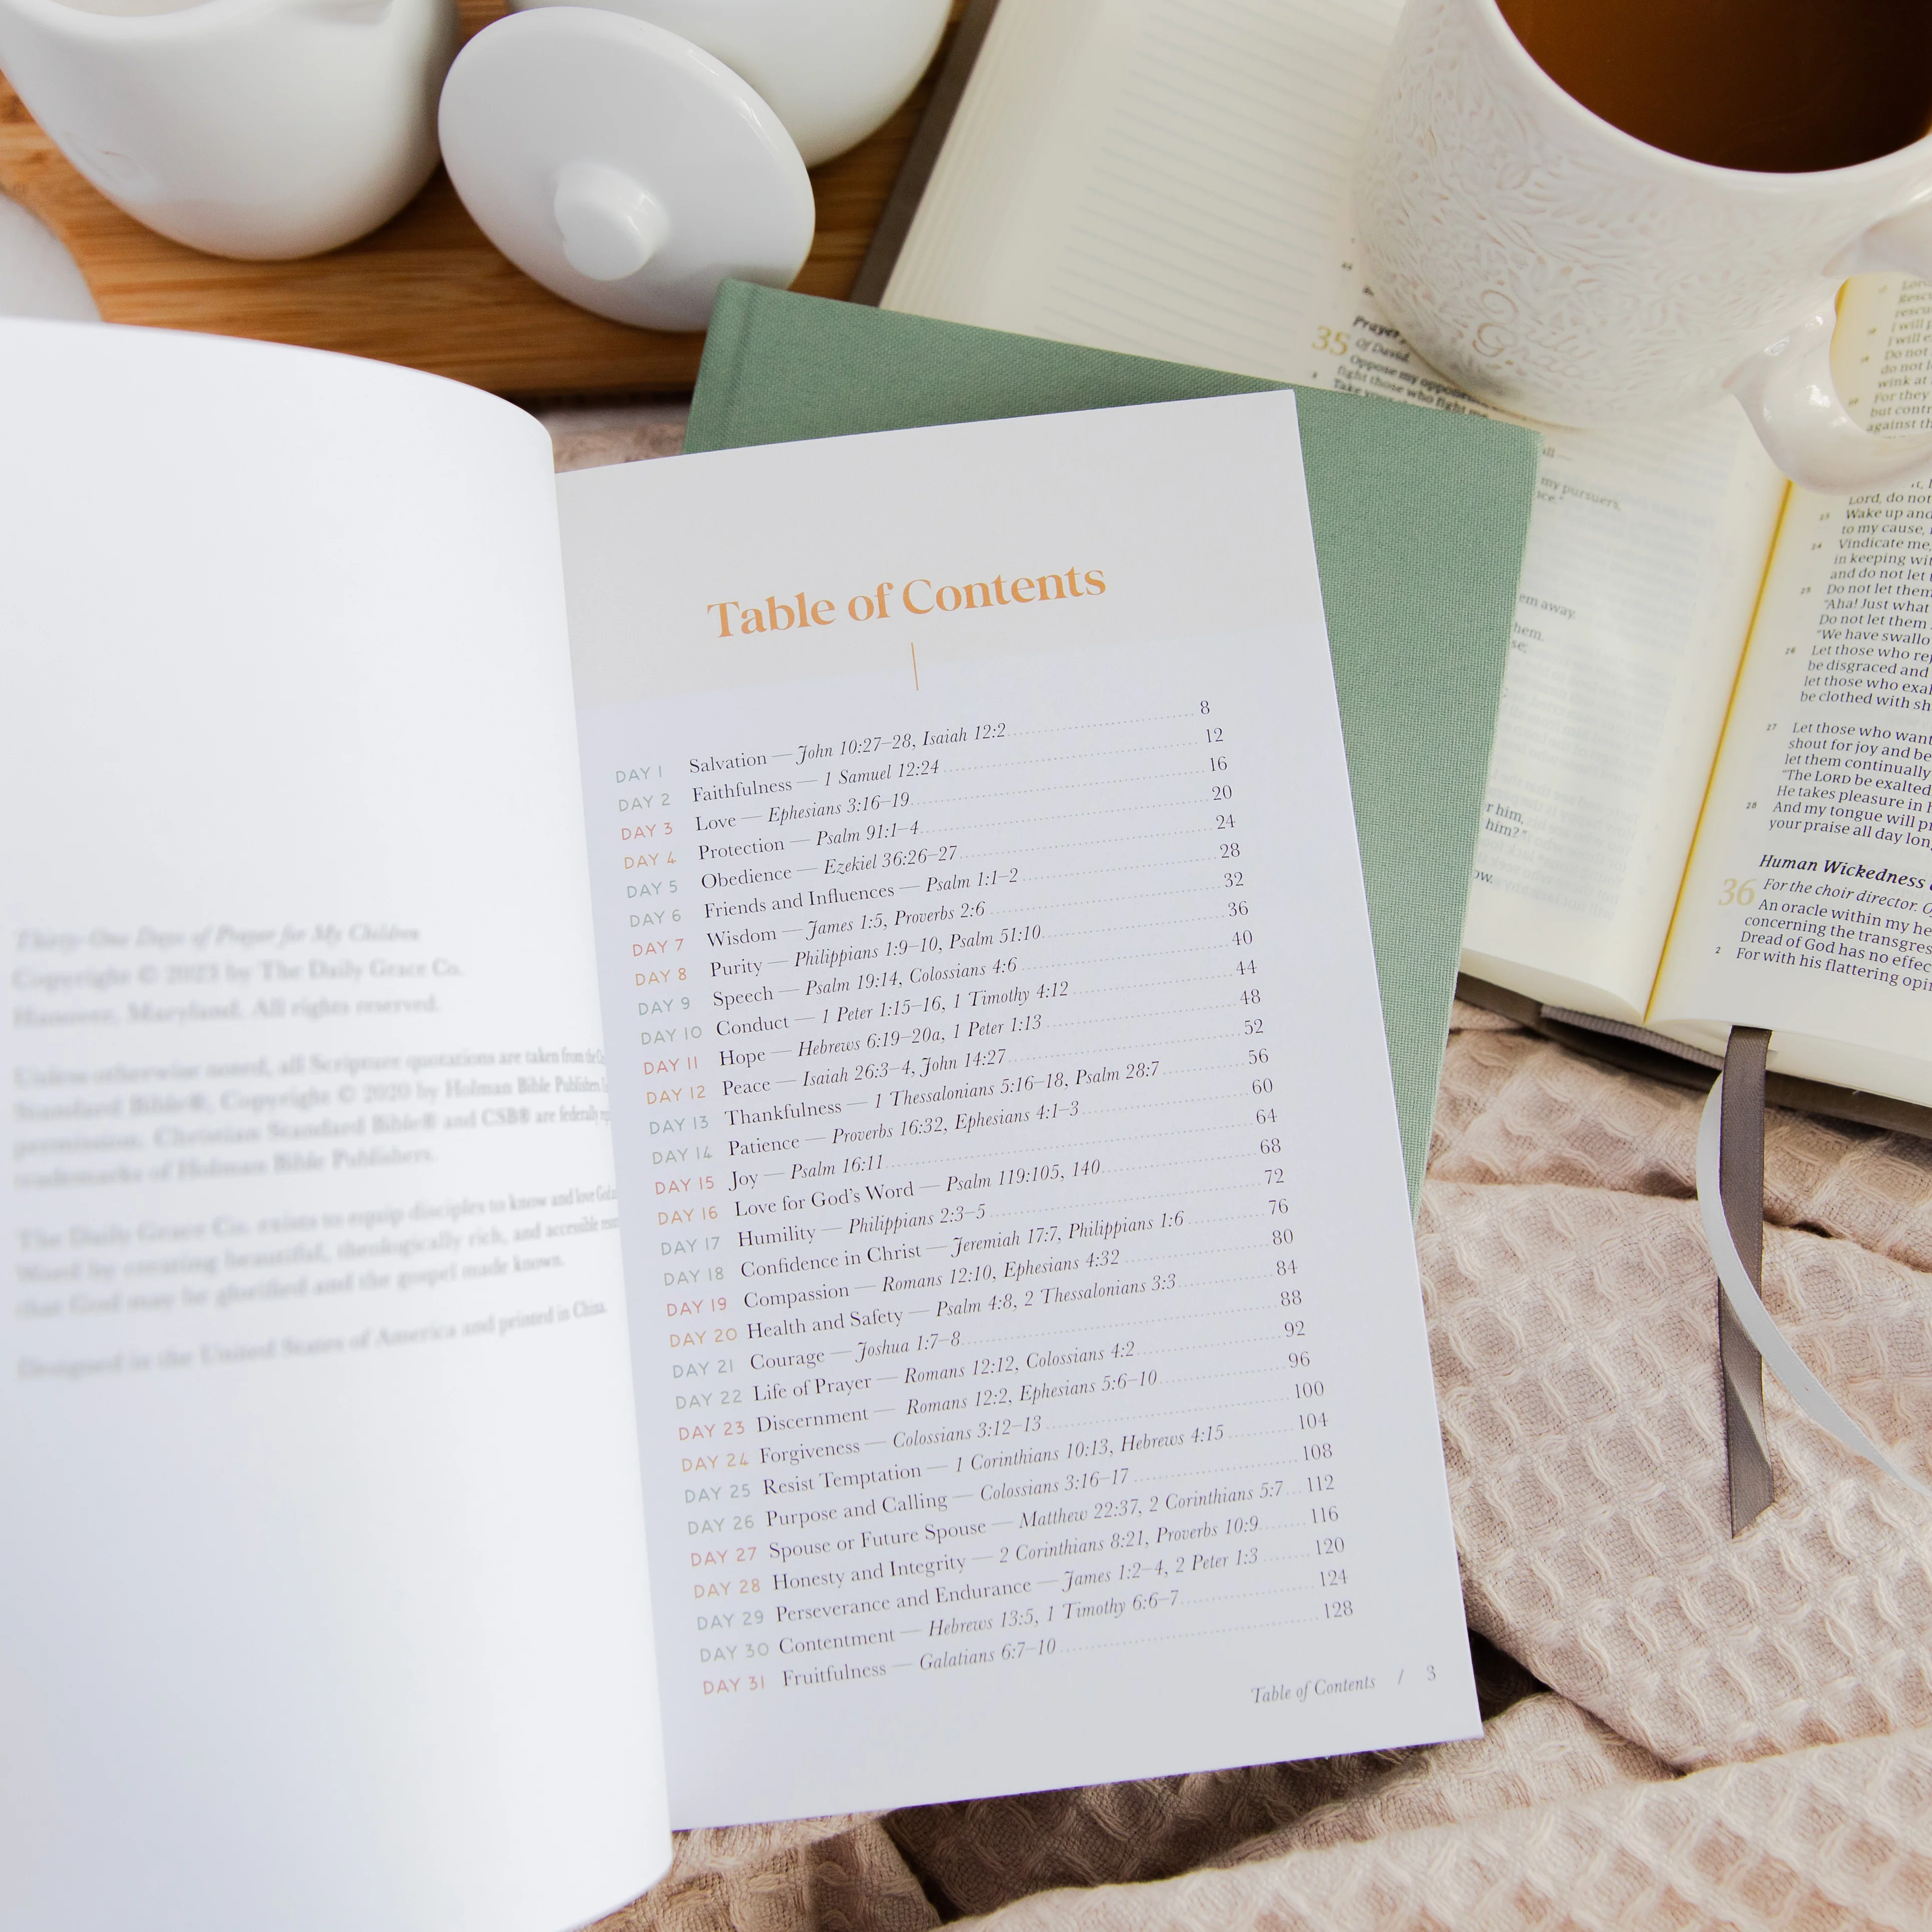 Thirty-One Days of Prayer for My Children
Copyright © 2023 by The Daily Grace Co.
Hanover, Maryland. All rights reserved.
Unless otherwise noted, all Scripture quotations are taken from the
Standard Bible®, Copyright © 2020 by Holman Bible Publishers
permission. Christian Standard Bible® and CSB® are federally
trademarks of Holman Bible Publishers.
The Daily Grace Co. exists to equip disciples to know and love God
Word by creating beautiful, theologically rich, and accessible
that God may be glorified and the gospel made known.
Designed in the United States of America and printed in China.
Table of Contents
DAY 1 Salvation — John 10:27–28, Isaiah 12:2 8
DAY 2 Faithfulness — 1 Samuel 12:24 12
DAY 3 Love — Ephesians 3:16–19 16
DAY 4 Protection — Psalm 91:1–4 20
DAY 5 Obedience — Ezekiel 36:26–27 24
DAY 6 Friends and Influences — Psalm 1:1–2 28
DAY 7 Wisdom — James 1:5, Proverbs 2:6 32
DAY 8 Purity — Philippians 1:9–10, Psalm 51:10 36
DAY 9 Speech — Psalm 19:14, Colossians 4:6 40
DAY 10 Conduct — 1 Peter 1:15–16, 1 Timothy 4:12 44
DAY 11 Hope — Hebrews 6:19–20a, 1 Peter 1:13 48
DAY 12 Peace — Isaiah 26:3–4, John 14:27 52
DAY 13 Thankfulness — 1 Thessalonians 5:16–18, Psalm 28:7 56
DAY 14 Patience — Proverbs 16:32, Ephesians 4:1–3 60
DAY 15 Joy — Psalm 16:11 64
DAY 16 Love for God's Word — Psalm 119:105, 140 68
DAY 17 Humility — Philippians 2:3–5 72
DAY 18 Confidence in Christ — Jeremiah 17:7, Philippians 1:6 76
DAY 19 Compassion — Romans 12:10, Ephesians 4:32 80
DAY 20 Health and Safety — Psalm 4:8, 2 Thessalonians 3:3 84
DAY 21 Courage — Joshua 1:7–8 88
DAY 22 Life of Prayer — Romans 12:12, Colossians 4:2 92
DAY 23 Discernment — Romans 12:2, Ephesians 5:6–10 96
DAY 24 Forgiveness — Colossians 3:12–13 100
DAY 25 Resist Temptation — 1 Corinthians 10:13, Hebrews 4:15 104
DAY 26 Purpose and Calling — Colossians 3:16–17 108
DAY 27 Spouse or Future Spouse — Matthew 22:37, 2 Corinthians 5:7 112
DAY 28 Honesty and Integrity — 2 Corinthians 8:21, Proverbs 10:9 116
DAY 29 Perseverance and Endurance — James 1:2–4, 2 Peter 1:3 120
DAY 30 Contentment — Hebrews 13:5, 1 Timothy 6:6–7 124
DAY 31 Fruitfulness — Galatians 6:7–10 128
Table of Contents / 3
Daily
Grace
35 Prayer
Of David.
Oppose my
fight those who fight me
Take
all—
my pursuers,
em away.
hem.
se;
r him,
him?"
ow.
rescu
I will p
I will e
Do not
do not l
wink at
For they
but contr
against th
Lord, do not
23 Wake up and
to my cause,
24 Vindicate me,
in keeping wit
and do not let
25 Do not let them
"Aha! Just what
Do not let them
"We have swallo
26 Let those who rej
be disgraced and
let those who exal
be clothed with sh
27 Let those who want
shout for joy and be
let them continually
"The LORD be exalted
He takes pleasure in h
28 And my tongue will pr
your praise all day lon
Human Wickedness
36 For the choir director. O
An oracle within my he
concerning the transgres
Dread of God has no effec
2 For with his flattering opi